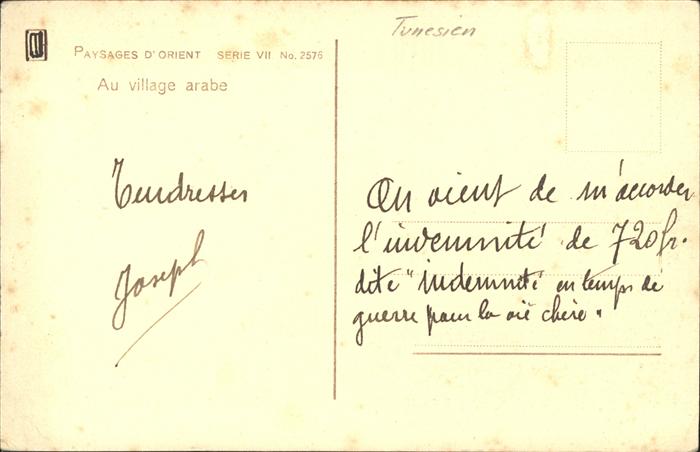 Tunesien
PAYSAGES D'ORIENT SERIE VII No. 2576
Au village arabe
Tendresses
Joseph
On vient de m'accorder
l'indemnité de 720 fr.
dite "indemnité en temps de
guerre pour la vie chère"